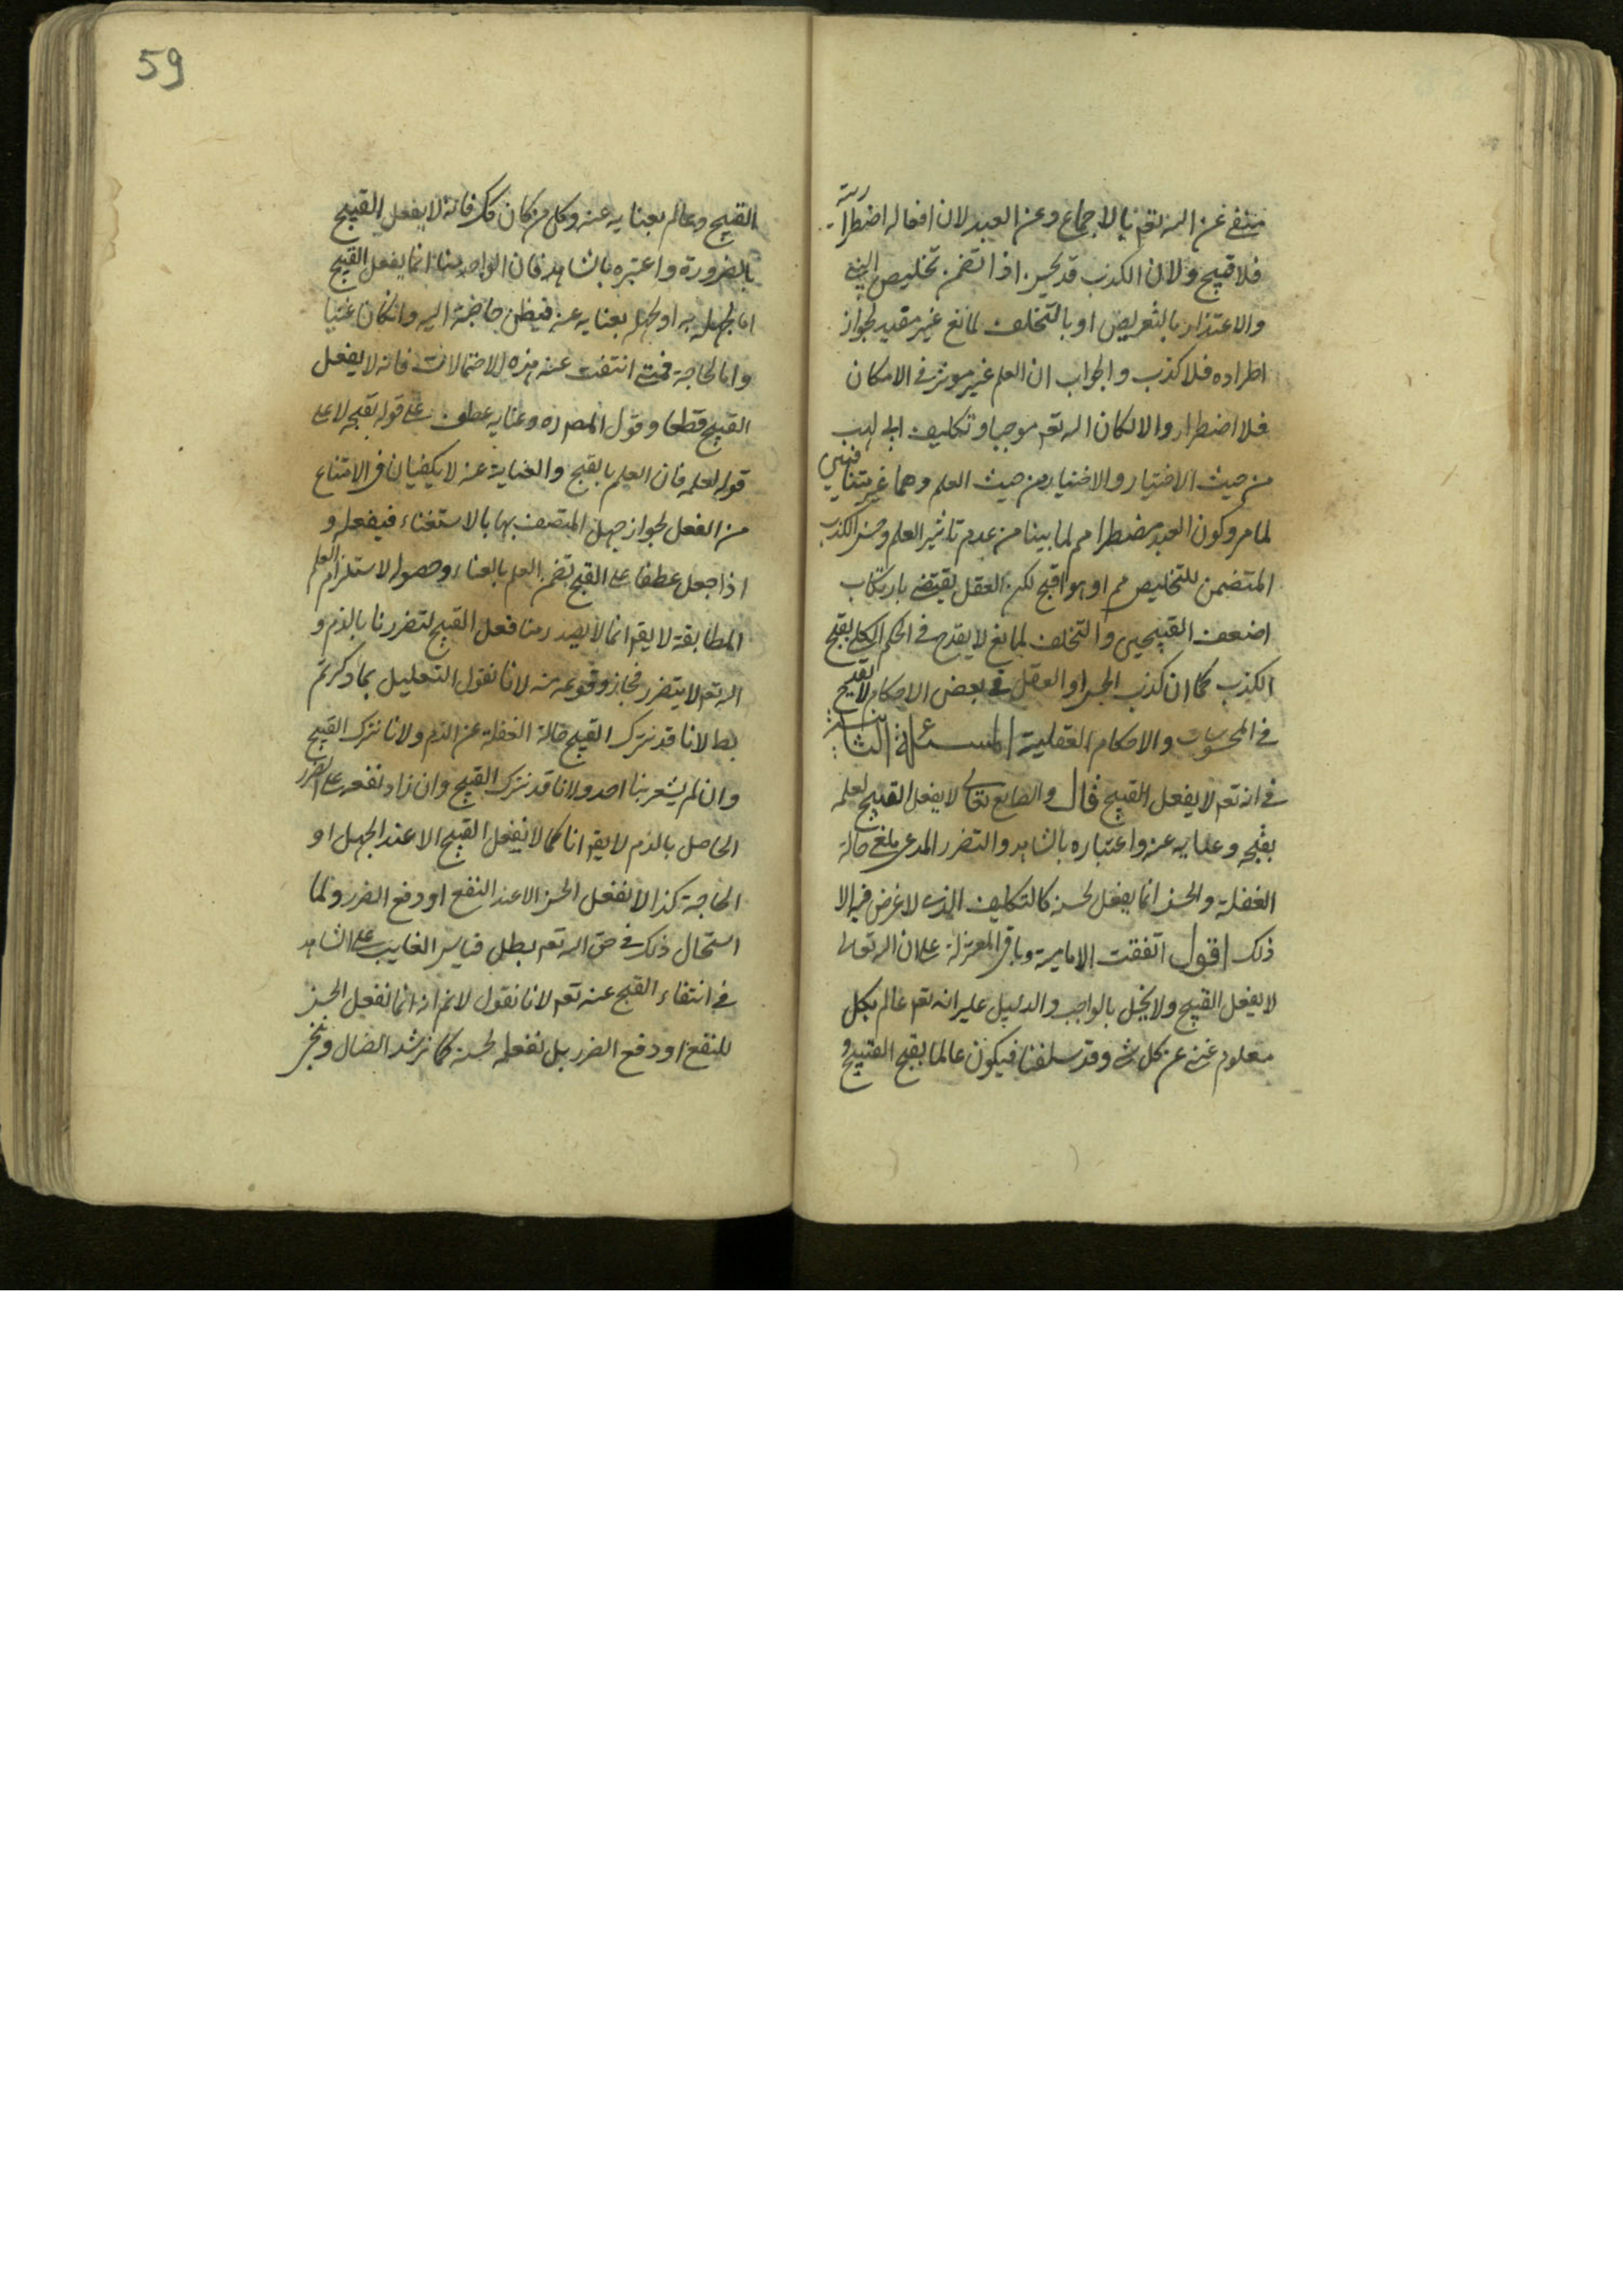 منفى عن اله تعم بالاجماع وعن العبد لان افعاله اضطرارية
فلا قبيح ولان الكذب قد يحسن اذا تضمن تخليص النبى
والاعتذار بالتعريض او بالتخلف لمانع غير مفيد لجواز
اطراده فلا كذب والجواب ان العلم غير موثر فى الامكان
فلا اضطرار والا لكان اله تعم موجبا وتكليف ابى لهب
من حيث الاختيار والاختيار من حيث العلم وهما غير متنافيين
لما مر وكون العبد مضطرا مم لما بينا من عدم تاثير العلم وحسن الكذب
المتضمن للتخليص مم او هو اقبح لكن العقل يقتضى بارتكاب
اضعف القبيحين والتخلف لمانع لا يقدح فى الحكم الكلى بقبح
الكذب كما ان كذب الحس او العقل فى بعض الاحكام لا يقدح
فى المحسوسات والاحكام العقلية المسئلة الثانية
فى انه تعم لا يفعل القبيح قال والصانع تعالى لا يفعل القبيح لعلمه
بقبحه وغنايه عنه واعتباره بالشاهد والتضرر المدعى ملغى حالة
الغفلة والحسن انما يفعل لحسنه كالتكليف الذى لا غرض فيه الا
ذلك اقول اتفقت الامامية وباقى المعتزلة على ان اله تعالى
لا يفعل القبيح ولا يخل بالواجب والدليل عليه انه تعم عالم بكل
معلوم غنى عن كل شى وقد سلفنا فيكون عالما بقبح القبيح و
59
القبيح وعالم بغنايه عنه وكل من كان كك فانه لا يفعل القبيح
بالضرورة واعتبره بالشاهد فان الواحد منا انما يفعل القبيح
اما لجهله به او لجهله بغنايه عنه فيظن حاجته اليه وان كان غنيا
واما لحاجة فمتى انتفت عنه هذه الاحتمالات فانه لا يفعل
القبيح قطعا وقول المصره وغنايه عطف على قوله بقبحه لا على
قوله لعلمه فان العلم بالقبح والغناية عنه لا يكفيان فى الامتناع
من الفعل لجواز جهل المتصف بها بالاستغناء فيفعله و
اذا جعل عطفا على القبح تضمن العلم بالغناء وحصوله لاستلزام العلم
المطابقة لا يقم انما لا يصدر منا فعل القبيح لتضررنا بالذم و
اله تعم لا يتضرر فجاز وقوعه منه لانا نقول التعليل بما ذكرتم
بط لانا قد نترك القبيح حالة الغفلة عن الذم ولانا نترك القبيح
وان لم يشعر بنا احد ولانا قد نترك القبيح وان زاد نفعه على الضرر
الحاصل بالذم لا يقم انا كما لا نفعل القبيح الا عند الجهل او
الحاجة كذا لا نفعل الحسن الا عند النفع او دفع الضرر ولما
استحال ذلك فى حق اله تعم بطل قياس الغايب على الشاهد
فى انتفاء القبح عنه تعم لانا نقول لا نم انه انما نفعل الحسن
للنفع او دفع الضرر بل نفعله لحسنه كما نرشد الضال